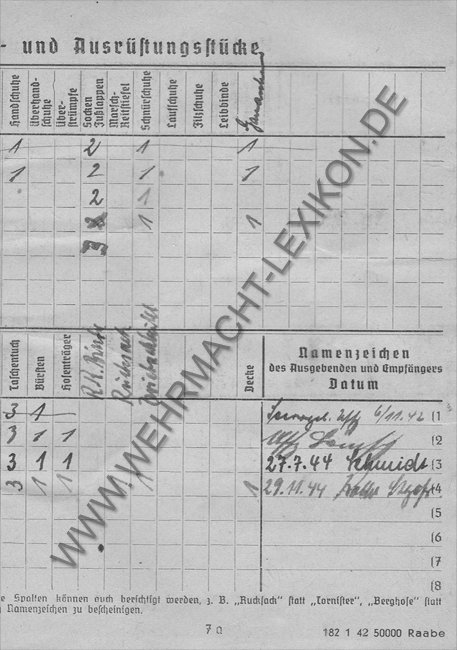 - und Ausrüstungsstücke
Handschuhe
Überhand-
schuhe
Über-
strümpfe
Socken
Fußlappen
Marsch-
Reitstiefel
Schnürschuhe
Laufschuhe
Filzschuhe
Leibbinde
Gamaschen
1 2 1 1
1 2 1 1
2 1
1 1
3
Taschentuch
Bürsten
Hosenträger
Rucksack
Decke
Namenzeichen
des Ausgebenden und Empfängers
Datum
3 1 Uffz 6/11.42 (1
3 1 1 Uffz (2
3 1 1 27.7.44 Schmidt (3
3 1 1 1 1 29.11.44 (4
(5
(6
(7
(8
e Spalten können auch berichtigt werden, z. B. „Rucksack" statt „Tornister", „Berghose" statt
Namenzeichen zu bescheinigen.
7 a
182 1 42 50000 Raabe
www.WEHRMACHT-LEXIKON.DE